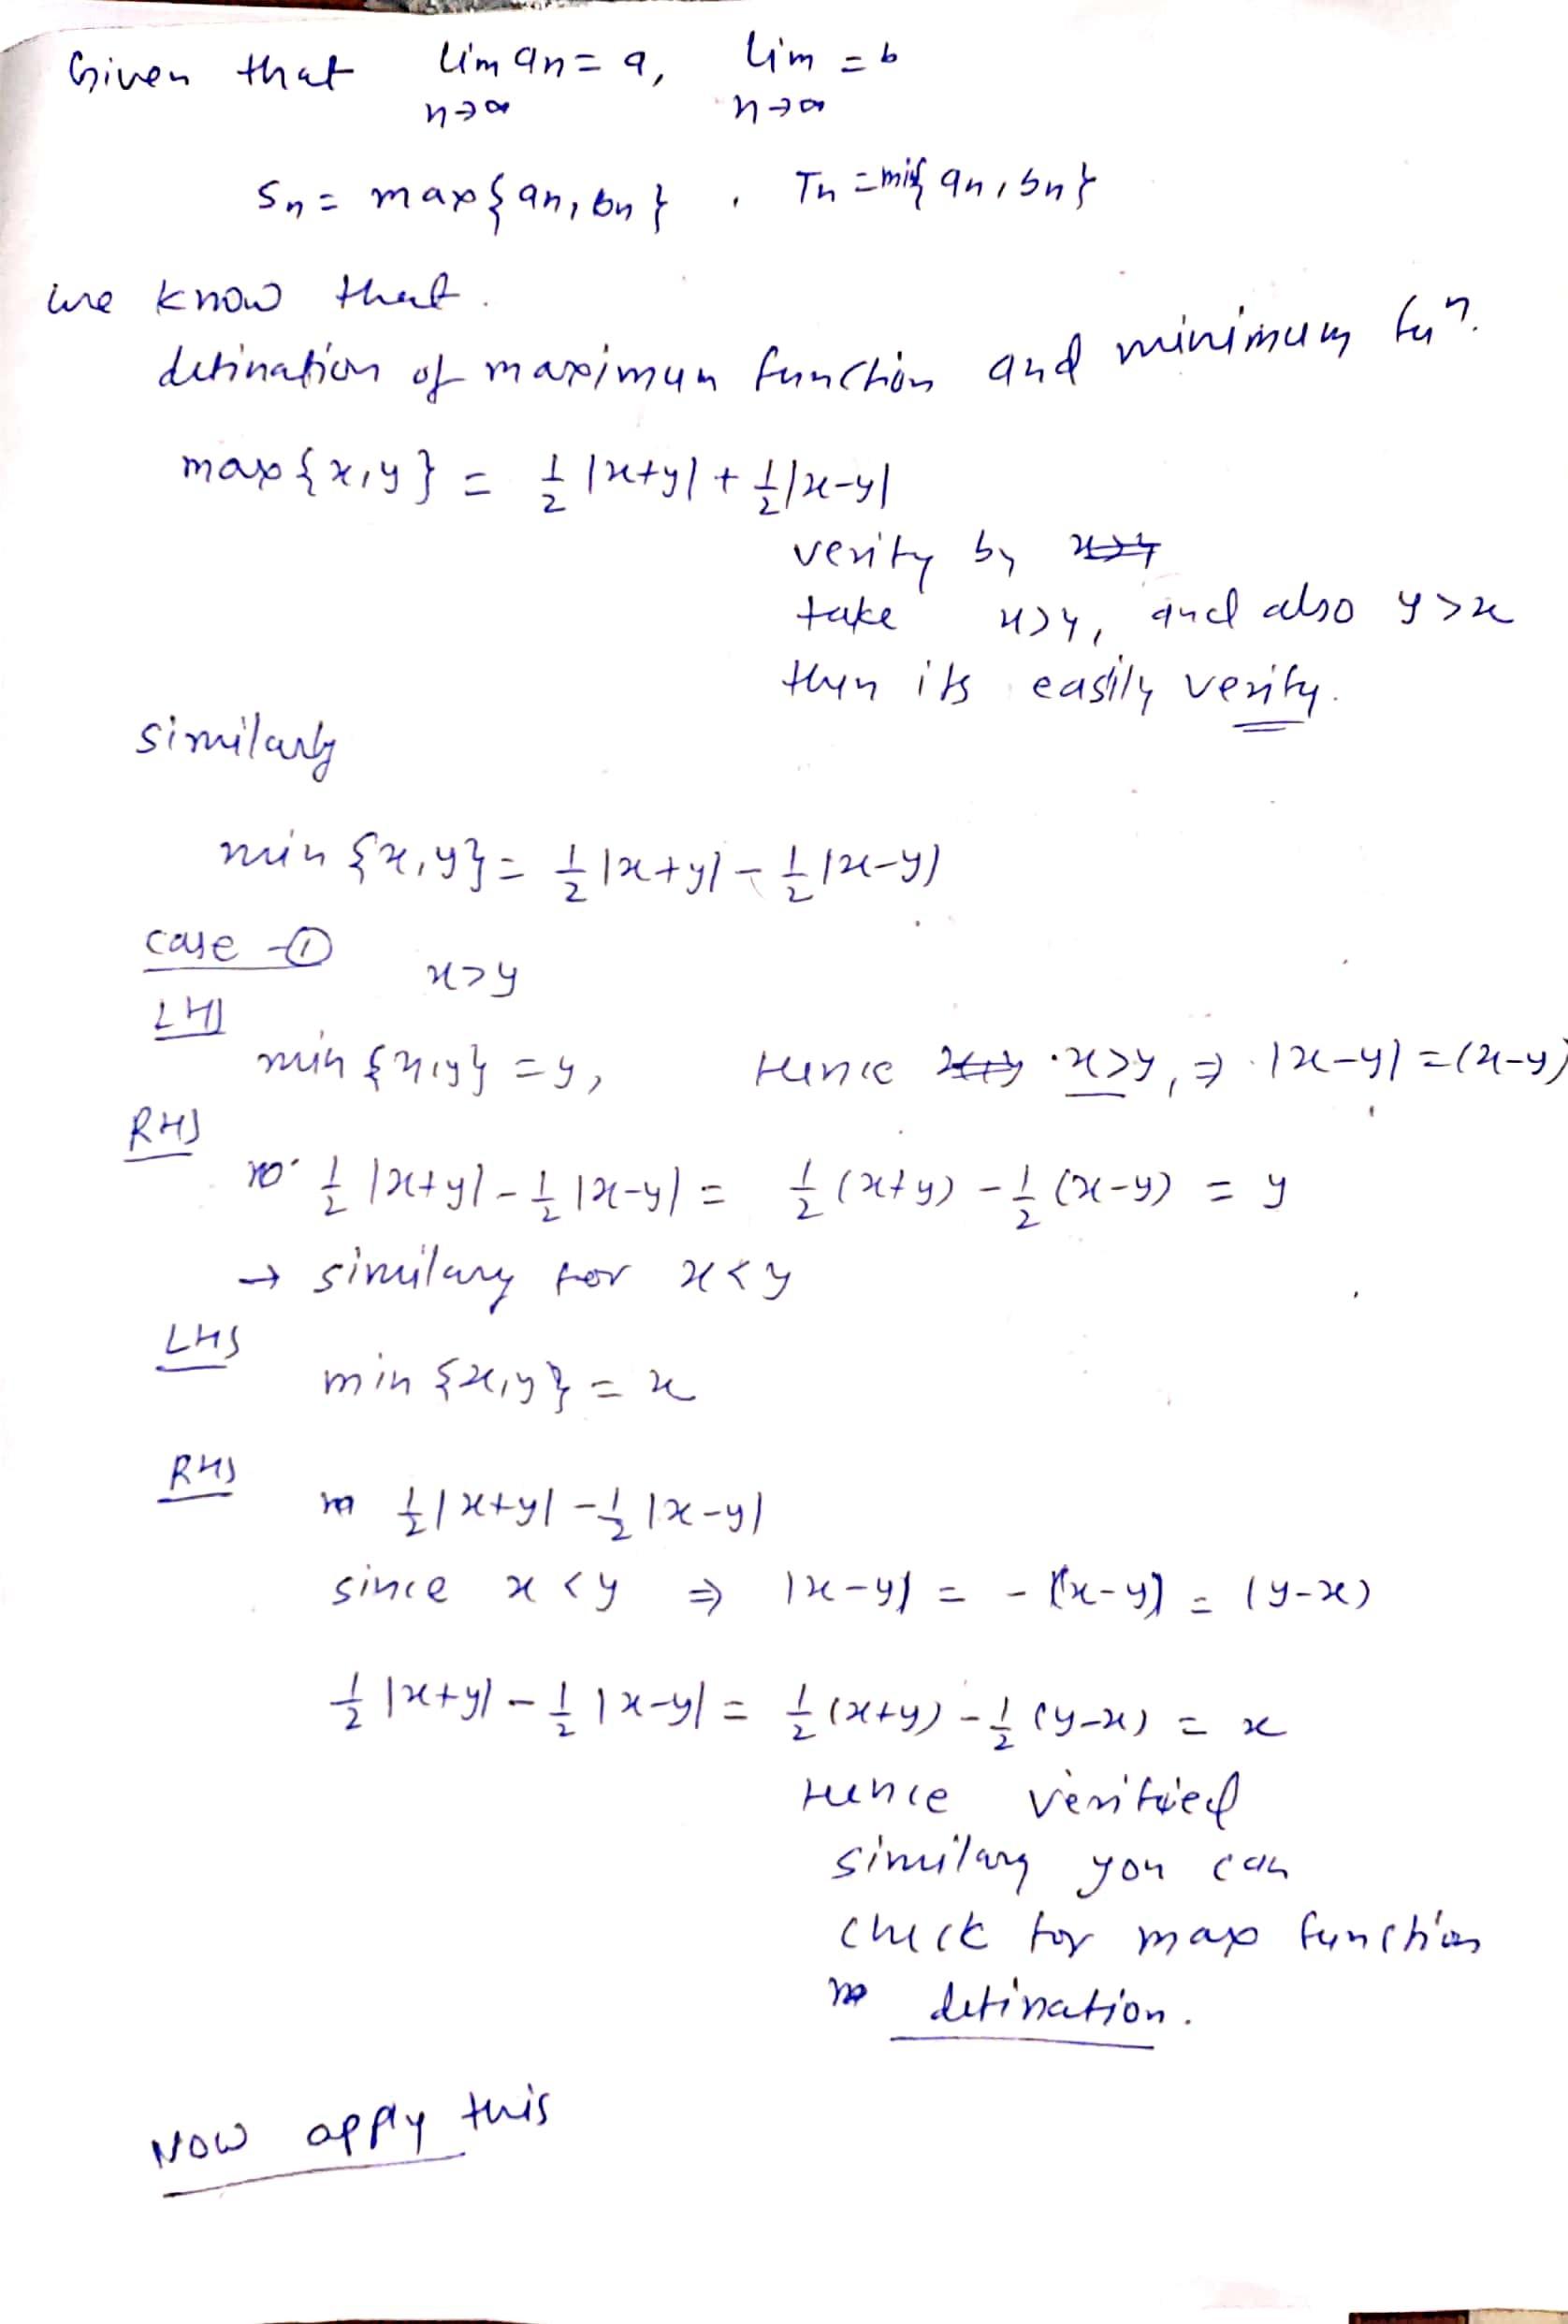 Given that lim an = a, lim = b
n→∞ n→∞
Sn = max{an, bn} , Tn = min{an, bn}
we know that.
defination of maximum function and minimum fun.
max{x,y} = 1/2 |x+y| + 1/2 |x-y|
verify by
take x>y, and also y>x
then its easily verify.
similarly
min {x,y} = 1/2 |x+y| - 1/2 |x-y|
case -① x>y
LHS
min {x,y} = y, Hence x>y, ⇒ |x-y| = (x-y)
RHS
1/2 |x+y| - 1/2 |x-y| = 1/2 (x+y) - 1/2 (x-y) = y
→ similary for x<y
LHS
min {x,y} = x
RHS
1/2 |x+y| - 1/2 |x-y|
since x < y ⇒ |x-y| = - (x-y) = (y-x)
1/2 |x+y| - 1/2 |x-y| = 1/2 (x+y) - 1/2 (y-x) = x
Hence verified
similary you can
check for max function
defination.
Now apply this